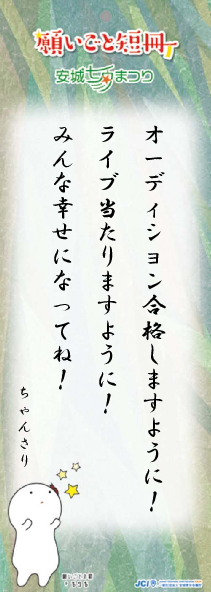 願いごと短冊
安城七夕まつり
オーディション合格しますように！
ライブ当たりますように！
みんな幸せになってね！
ちゃんさり
JCI